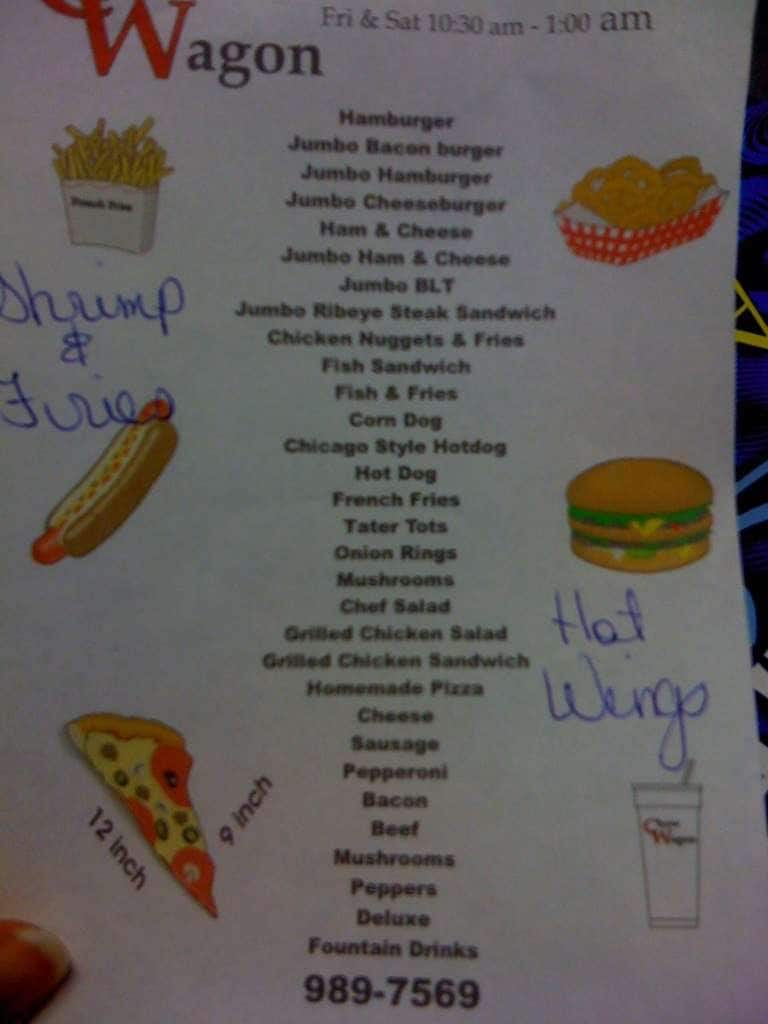 Wagon
Fri & Sat 10:30 am - 1:00 am
Hamburger
Jumbo Bacon burger
Jumbo Hamburger
Jumbo Cheeseburger
Ham & Cheese
Jumbo Ham & Cheese
Jumbo BLT
Jumbo Ribeye Steak Sandwich
Chicken Nuggets & Fries
Fish Sandwich
Fish & Fries
Corn Dog
Chicago Style Hotdog
Hot Dog
French Fries
Tater Tots
Onion Rings
Mushrooms
Chef Salad
Grilled Chicken Salad
Grilled Chicken Sandwich
Homemade Pizza
Cheese
Sausage
Pepperoni
Bacon
Beef
Mushrooms
Peppers
Deluxe
Fountain Drinks
989-7569
French Fries
Shrimp
&
Fries
12 inch
9 inch
Hot
Wings
Wagon